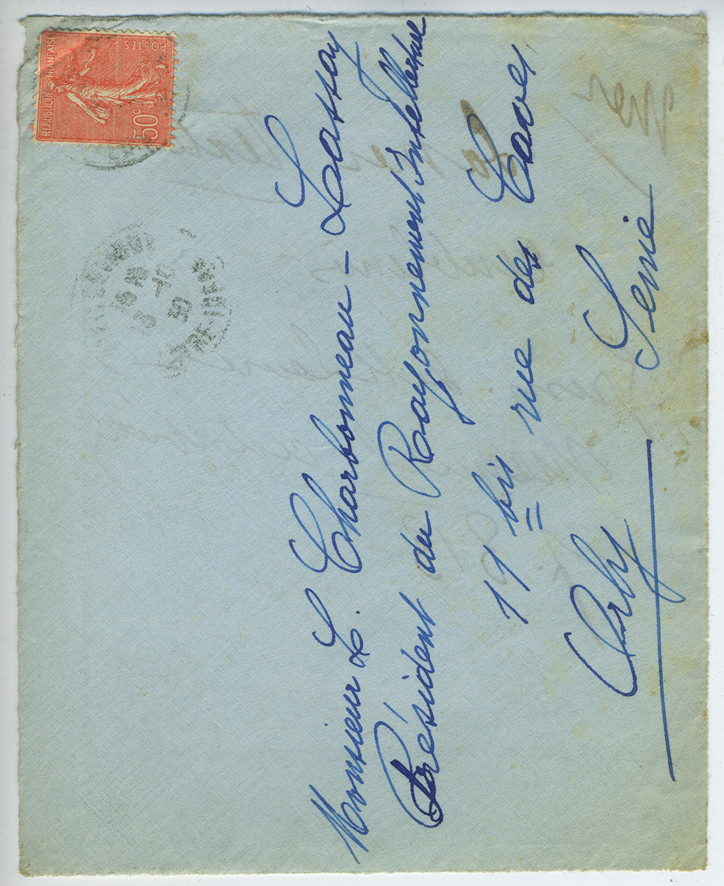 Monsieur L. Charbonneau-Lassay
Président du Rayonnement Intellectuel
19 bis rue des Caves
Orly Seine
REPUBLIQUE FRANÇAISE
POSTES
50c